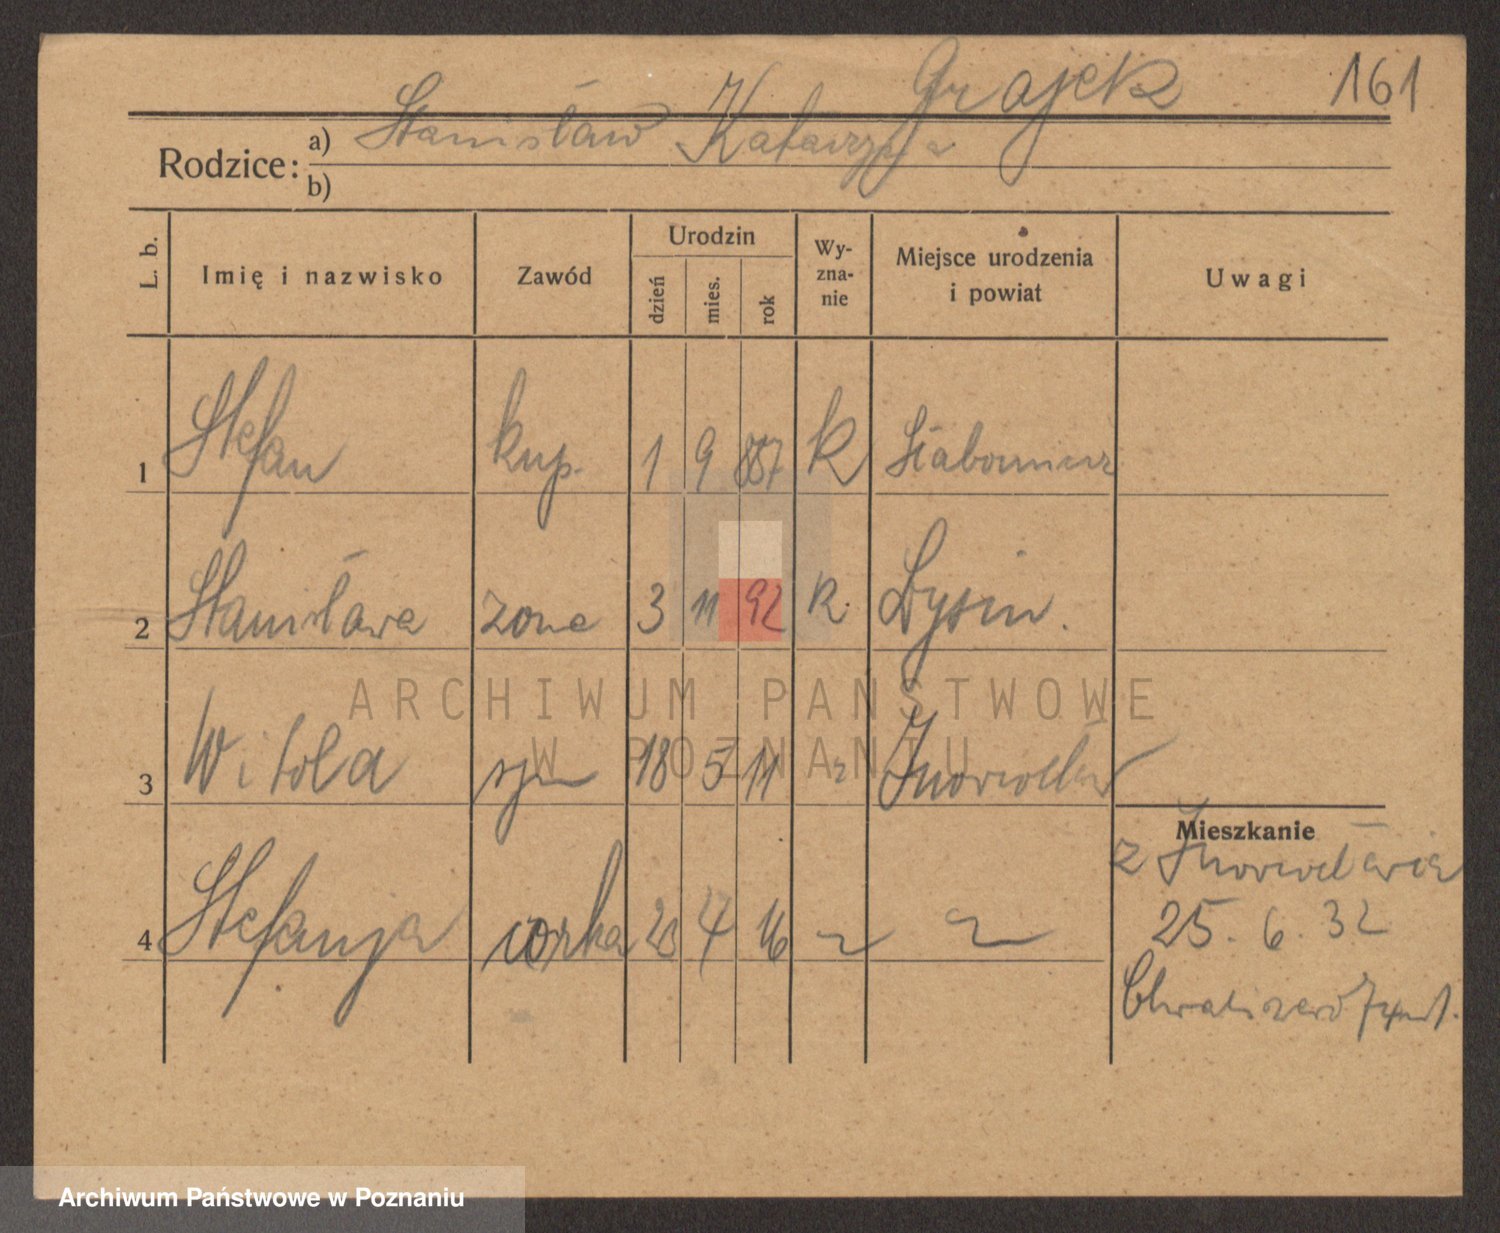 Grajek 161
Rodzice: a) Stanisław Katarzyna
b)
L. b. Imię i nazwisko Zawód Urodzin dzień mies. rok Wy-zna-nie Miejsce urodzenia i powiat Uwagi
1 Stefan kup. 1 9 887 k
2 Stanisława żona 3 11 92 k.
ARCHIWUM PAŃSTWOWE
W POZNANIU
3 Witold syn 18 5 11 Inowrocław
Mieszkanie
z Inowrocławia
4 Stefanja córka 4 16
25.6.32
Archiwum Państwowe w Poznaniu